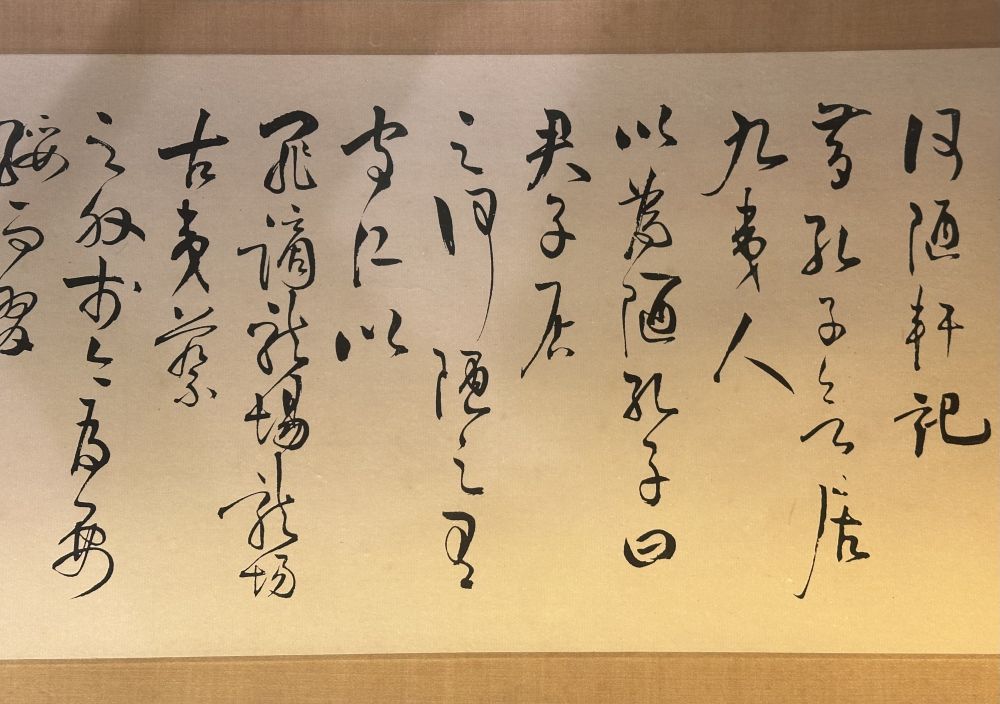 何陋軒記
昔孔子欲居
九夷人
以為陋孔子曰
君子居
之何陋之有
守仁以
罪謫龍場龍場
古夷蔡
之外於今為要
綏而習